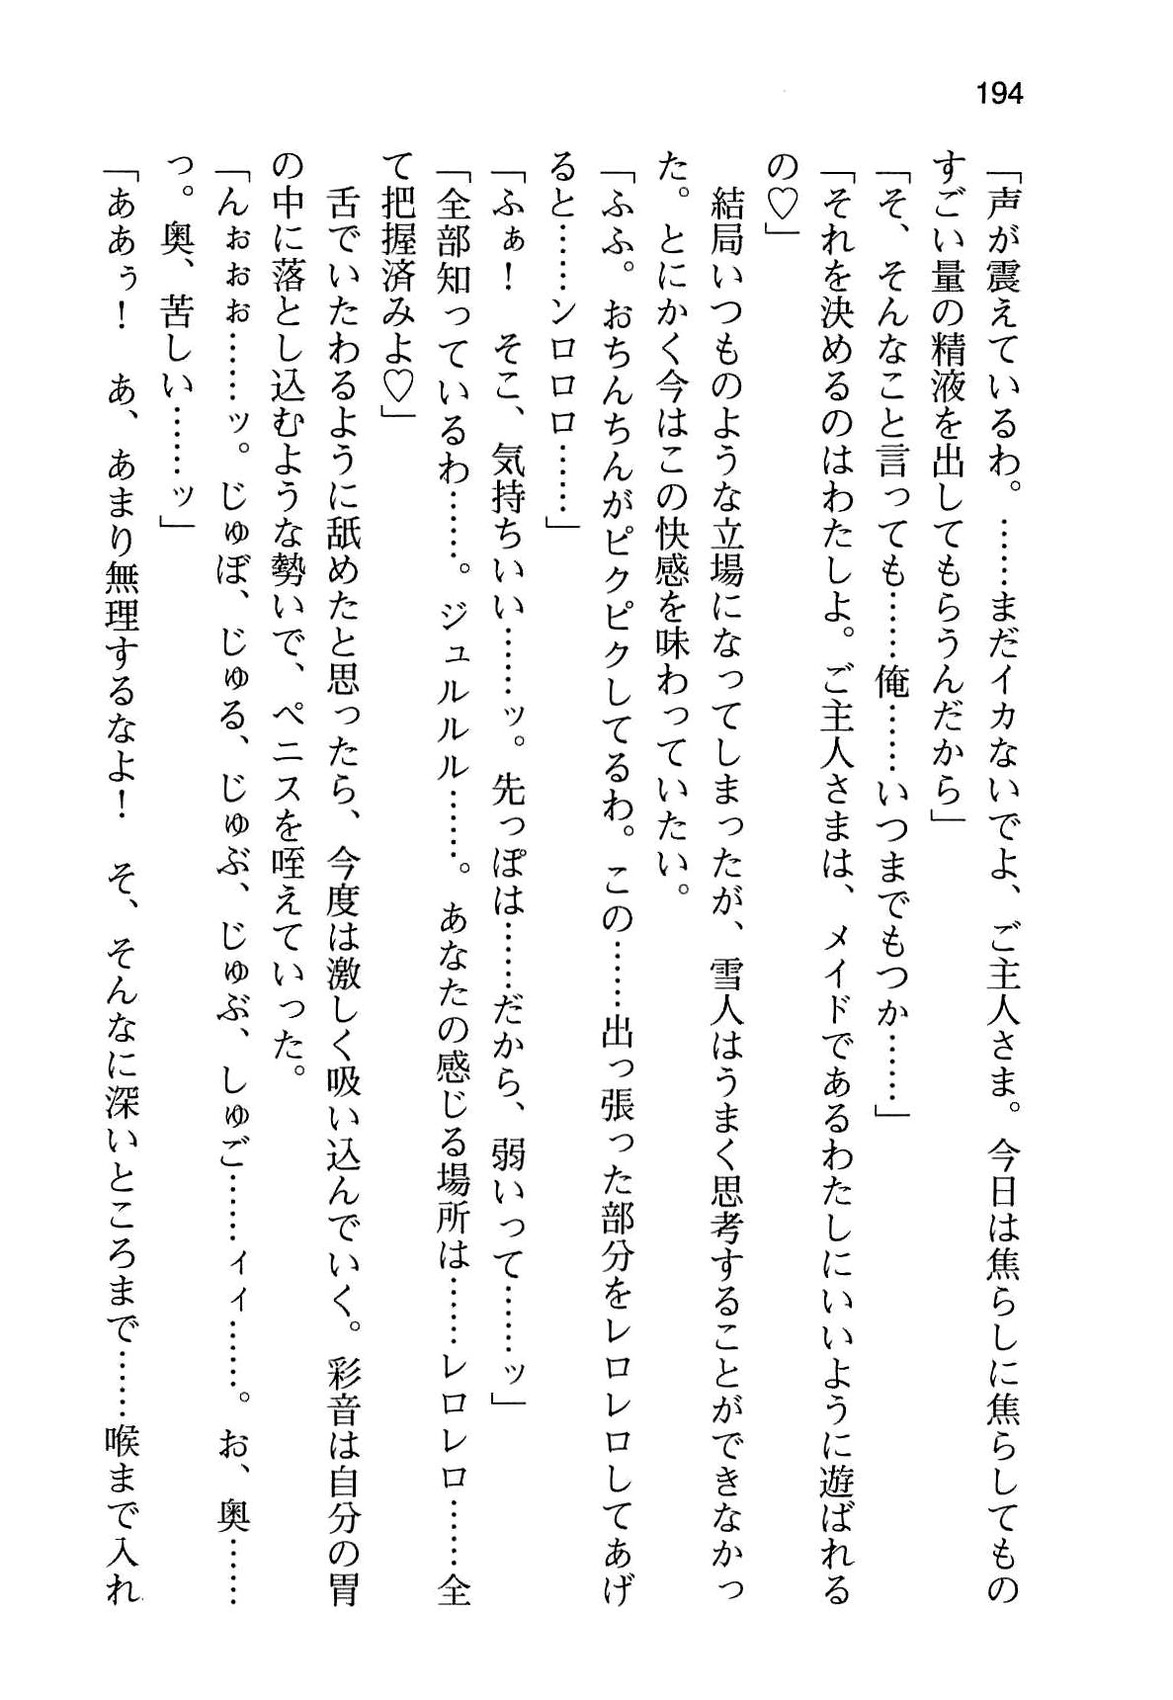 194
「声が震えているわ。……まだイカないでよ、ご主人さま。今日は焦らしに焦らしてもの
すごい量の精液を出してもらうんだから」
「そ、そんなこと言っても……俺……いつまでもつか……」
「それを決めるのはわたしよ。ご主人さまは、メイドであるわたしにいいように遊ばれる
の♡」
　結局いつものような立場になってしまったが、雪人はうまく思考することができなかっ
た。とにかく今はこの快感を味わっていたい。
「ふふ。おちんちんがピクピクしてるわ。この……出っ張った部分をレロレロしてあげ
ると……ンロロロ……」
「ふぁ！　そこ、気持ちいい……ッ。先っぽは……だから、弱いって……ッ」
「全部知っているわ……。ジュルルル……。あなたの感じる場所は……レロレロ……全
て把握済みよ♡」
　舌でいたわるように舐めたと思ったら、今度は激しく吸い込んでいく。彩音は自分の胃
の中に落とし込むような勢いで、ペニスを咥えていった。
「んぉぉぉ……ッ。じゅぼ、じゅる、じゅぶ、じゅぶ、しゅご……ィィ……。お、奥……
っ。奥、苦しい……ッ」
「ああぅ！　あ、あまり無理するなよ！　そ、そんなに深いところまで……喉まで入れ